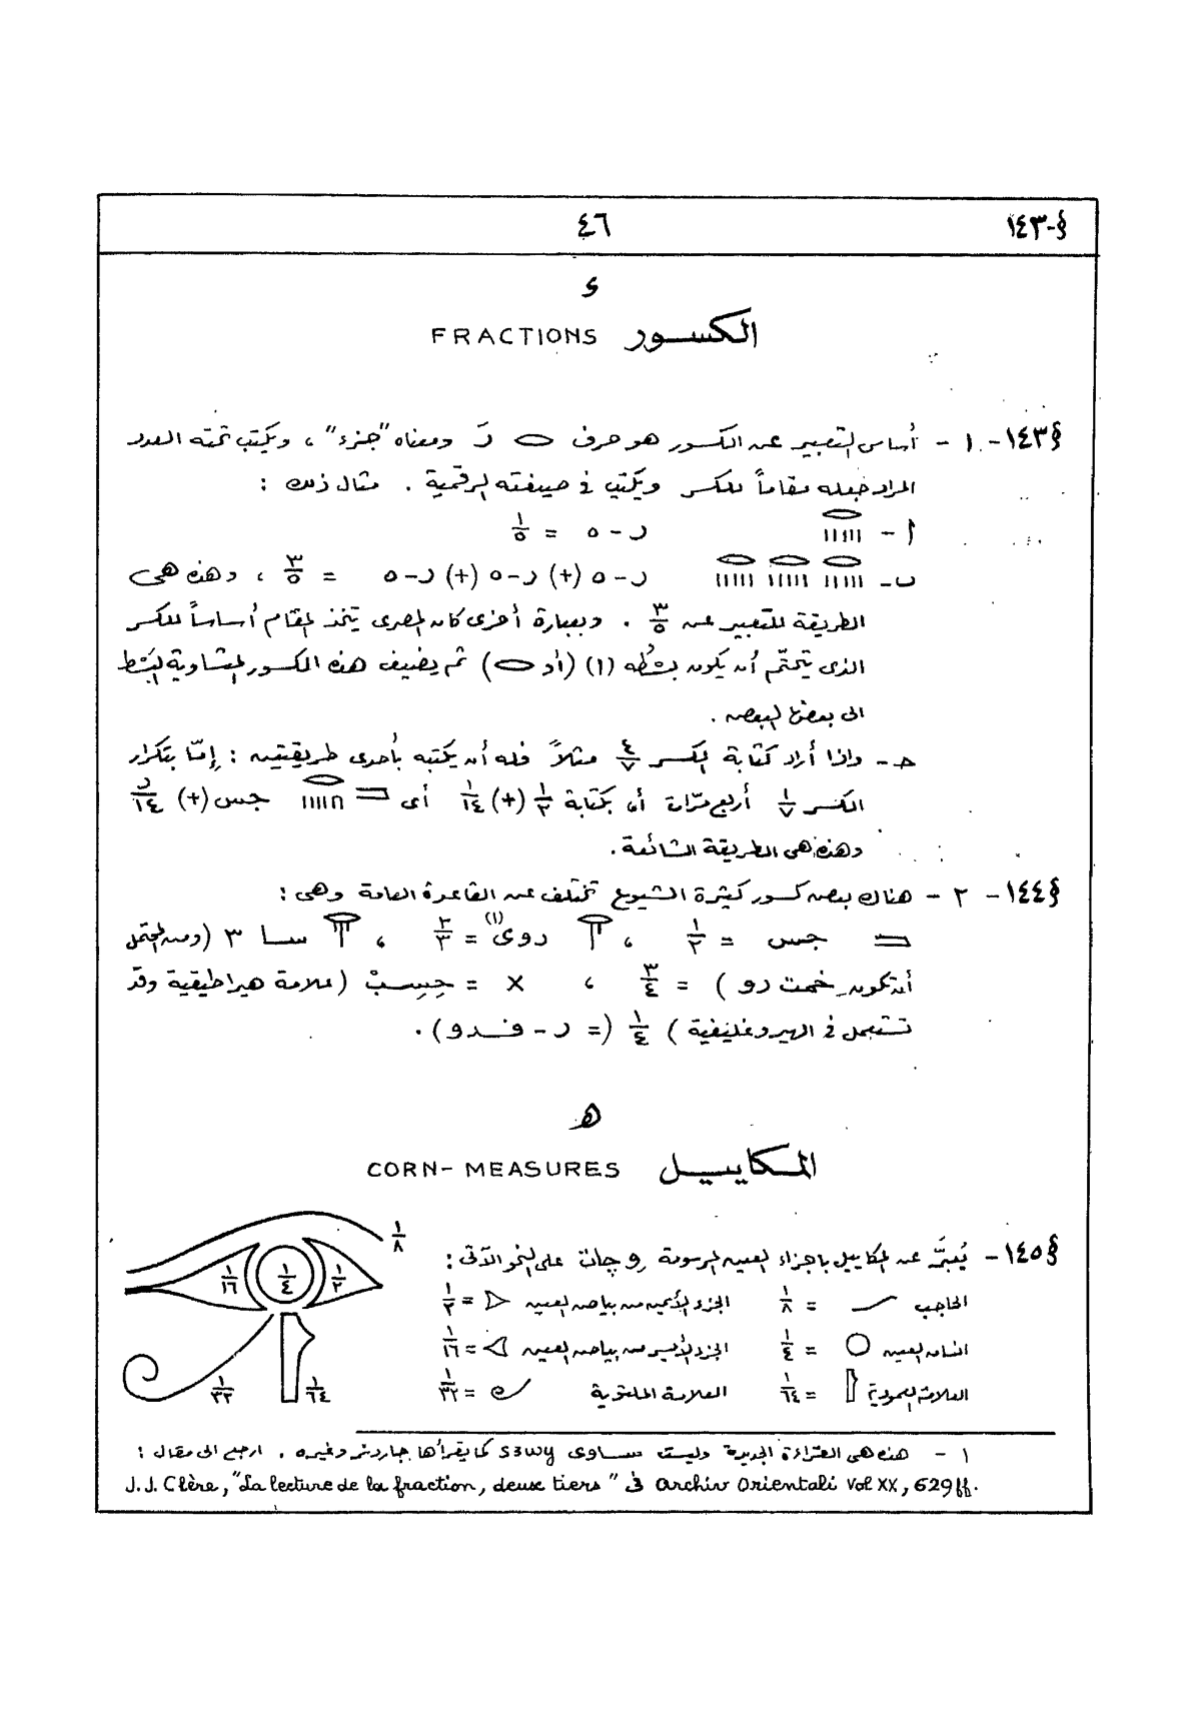 §-١٤٣
٤٦
و
الكسور FRACTIONS
§١٤٣- ١ - أساس التعبير عن الكسور هو حرف 𓂋 رَ ومعناه "جزء" ، ويكتب تحته العدد
المراد جعله مقاماً للكسر ويكتب في صيغته الرقمية . مثال ذلك :
أ - ر - ٥ = ١/٥
ب - ر - ٥ (+) ر - ٥ (+) ر - ٥ = ٣/٥ ، وهذه هى
الطريقة للتعبير عن ٣/٥ . وبعبارة أخرى كان المصرى يتخذ المقام أساساً للكسر
الذى يتحتّم أن يكون بسْطُه (١) (أو 𓂋) ثم يضيف هذه الكسور المتساوية البَسْط
الى بعضها البعض .
حـ - واذا أراد كتابة الكسر ٤/٧ مثلاً فله أن يكتبه بأحدى طريقتين : إمّا بتكرار
الكسر ١/٧ أربع مرّات أو بكتابة ١/٢ (+) ١/١٤ أى 𓐛 جس (+) ر/١٤
وهذه هى الطريقة الشائعة .
§١٤٤ - ٢ - هناك بعض كسور كثيرة الشيوع تختلف عن القاعدة العامة وهى :
𓐛 جس = ١/٢ ، روى (١) = ٢/٣ ، سا ٣ (ومن المحتمل
أن تكون خمت رو ) = ٣/٤ ، × = حِسِبْ (علامة هيراطيقية وقد
تستعمل في الهيروغليفية ) ١/٤ (= ر - فدو) .
ه
المكاييل CORN- MEASURES
§١٤٥ - يُعبَّر عن المكاييل باجزاء العين المرسومة على النحو الآتى :
١/٨
١/١٦ ١/٤ ١/٢
١/٣٢ ١/٦٤
الحاجب = ١/٨ الجزء الأيمن من بياض العين = ١/٢
انسان العين = ١/٤ الجزء الأيسر من بياض العين = ١/١٦
العلامة العمودية = ١/٦٤ العلامة الملتوية = ١/٣٢
١ - هذه هى القراءة الجديدة وليست سـاوى s3wy كما يقرأها جاردنر وغيره . ارجع الى مقال :
J. J. Clère, "La lecture de la fraction, deux tiers" في Archiv Orientali Vol XX, 629 ff.